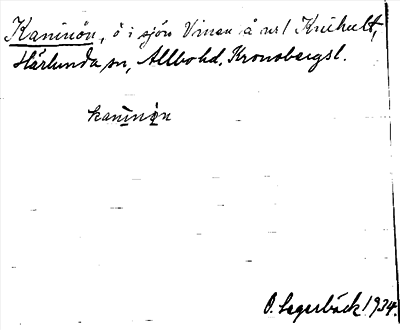 Kaninön, ö i sjön Vinen å nr 1 Knihult,
Härlunda sn, Allbo hd, Kronobergs l.
kaninön
O. Lagerbäck 1934.